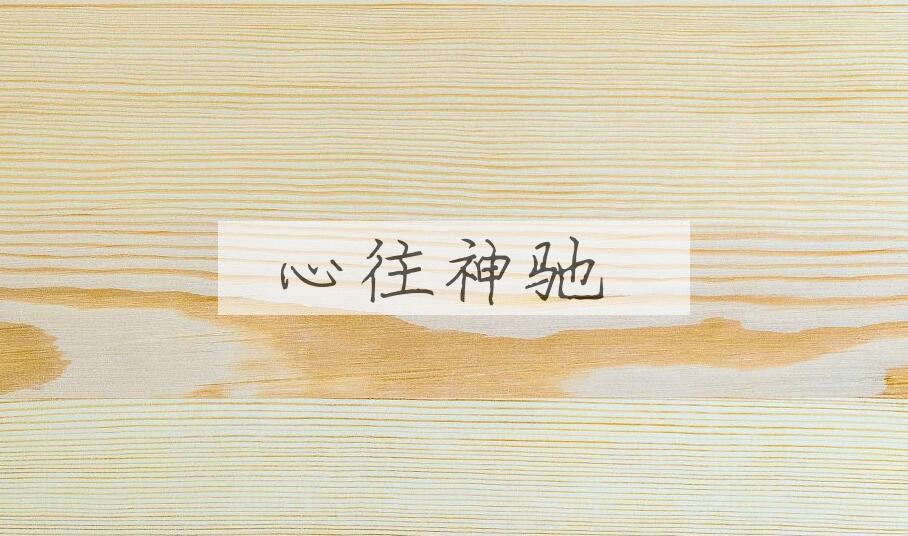 心往神驰